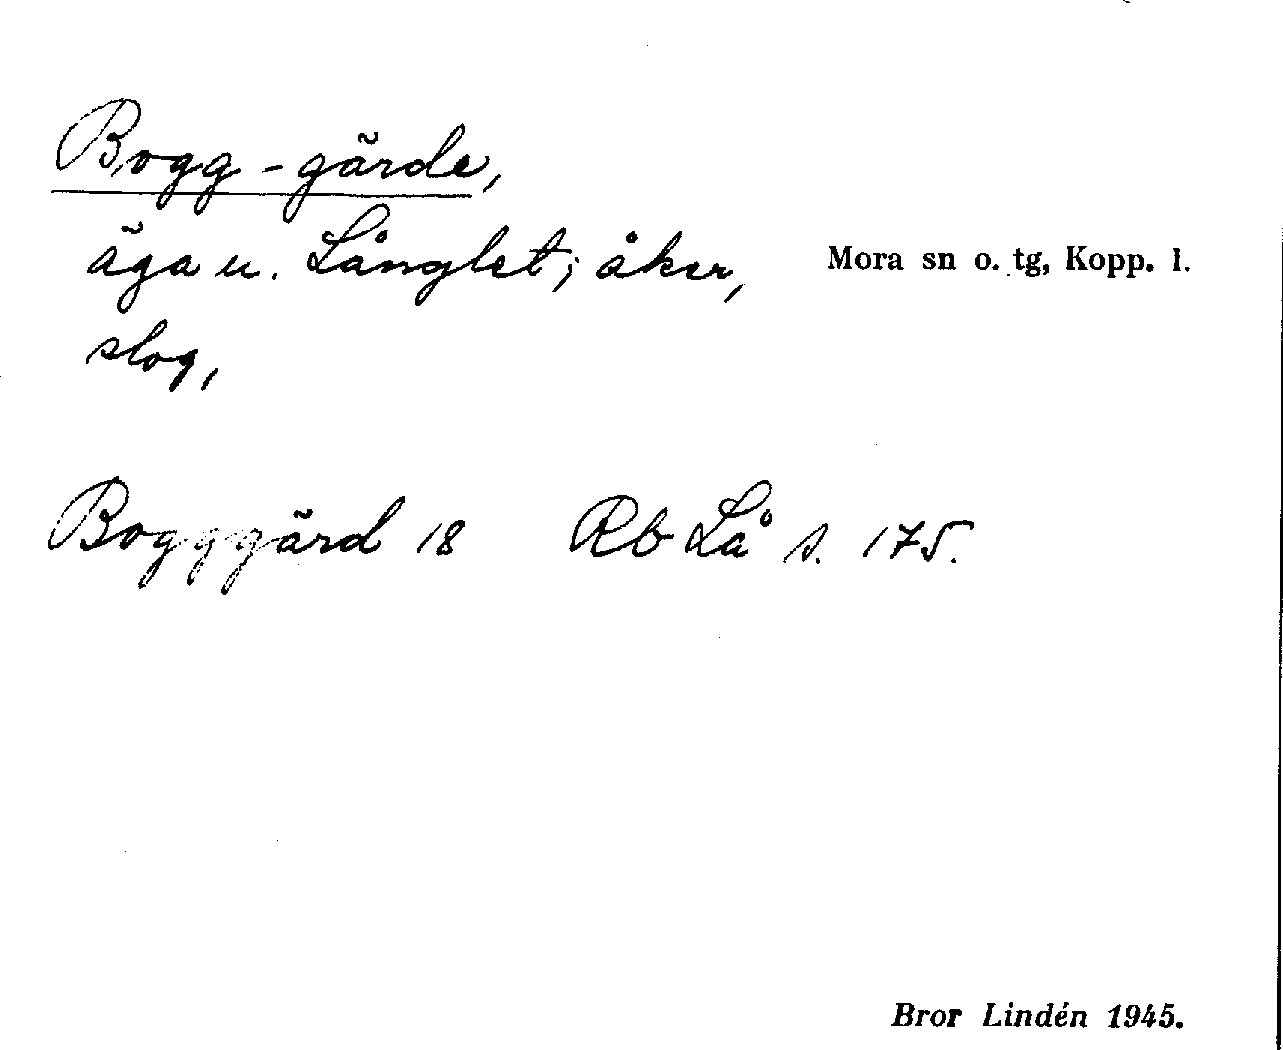 Bogg-gärde,
äga u. Långlet; åker,
slog,
Mora sn o. tg, Kopp. l.
Bogggärd 18 Rb Lå s. 175.
Bror Lindén 1945.